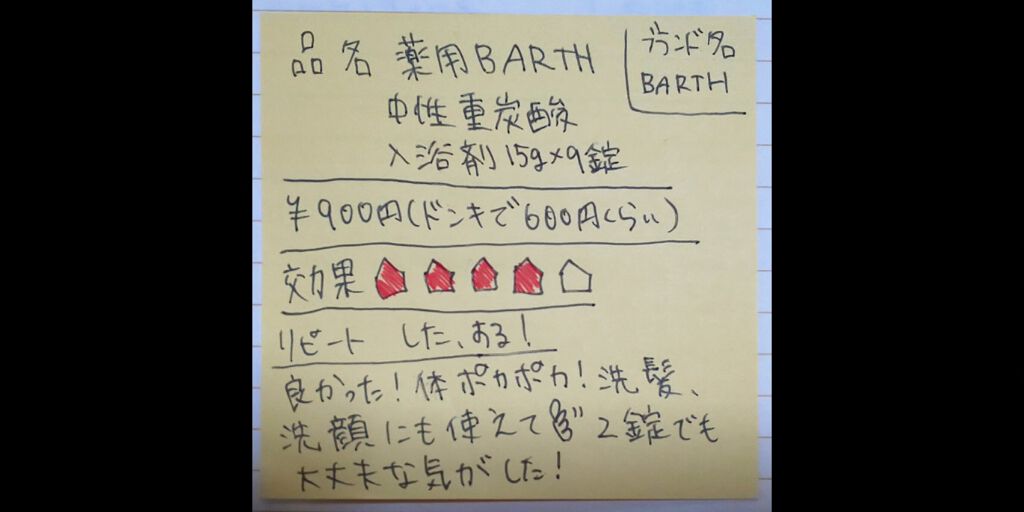 品名 薬用BARTH
中性重炭酸
入浴剤15g×9錠
ブランド名
BARTH
¥900円(ドンキで600円くらい)
効果
リピート した、ある!
良かった!体ポカポカ!洗髪、
洗顔にも使えて 2錠でも
大丈夫な気がした!